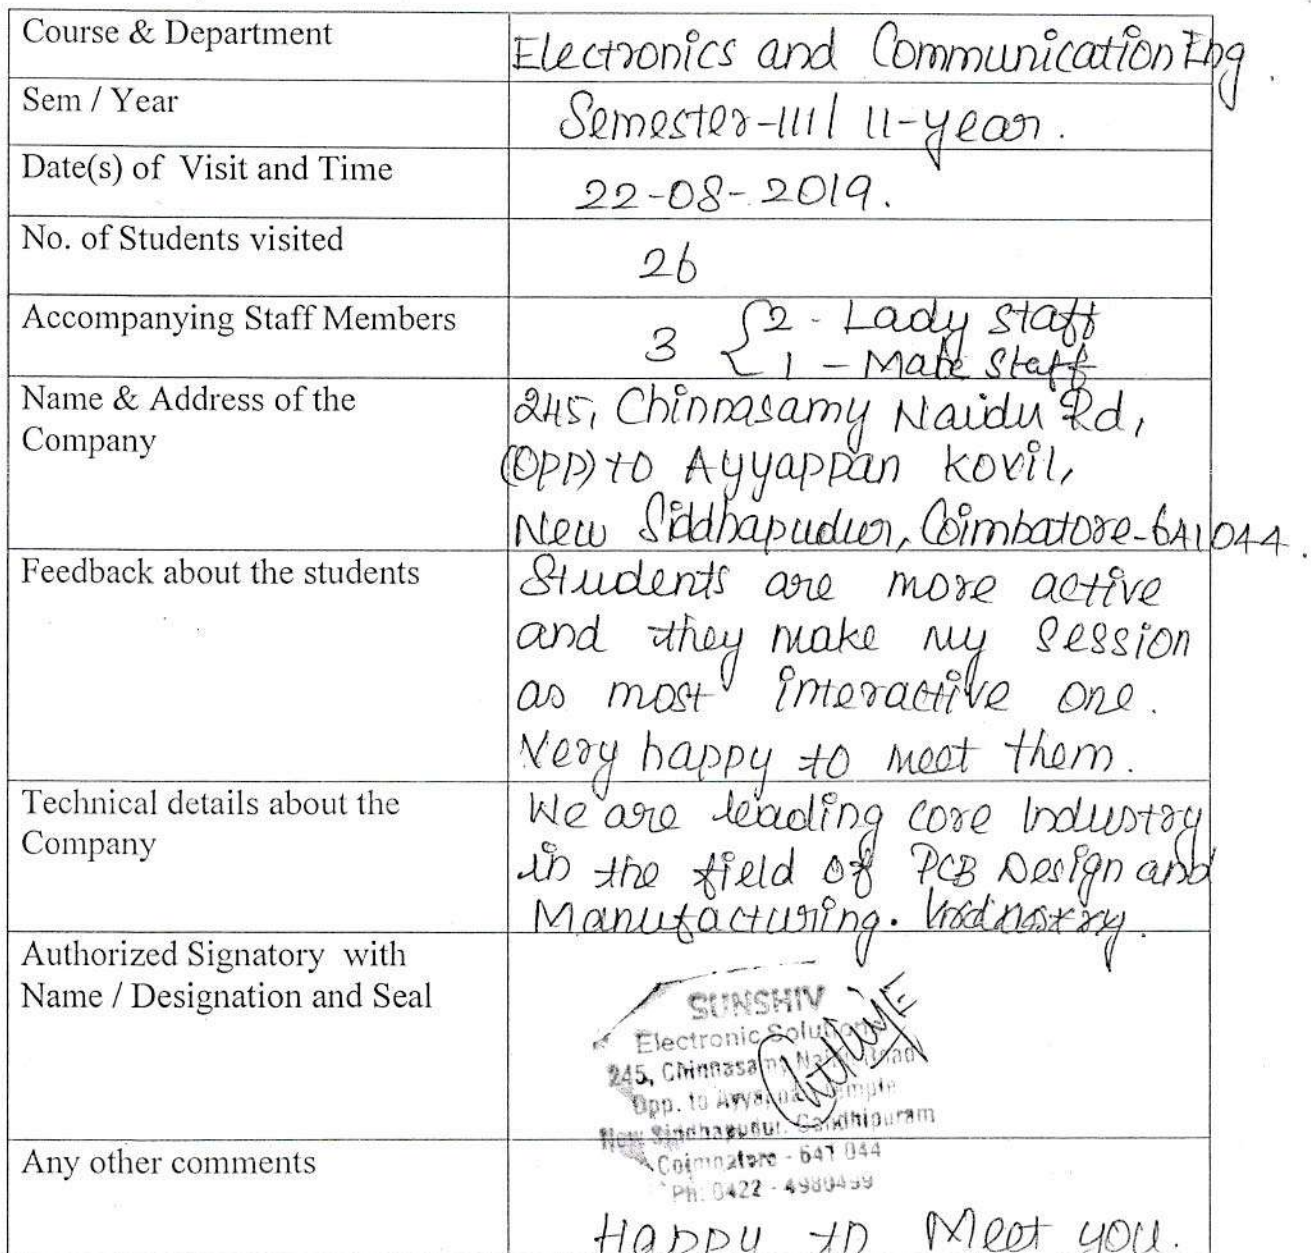 Course & Department
Electronics and Communication Eng.
Sem / Year
Semester-III / II-year.
Date(s) of Visit and Time
22-08-2019.
No. of Students visited
26
Accompanying Staff Members
3 { 2 - Lady staff
1 - Male Staff
Name & Address of the
Company
245, Chinnasamy Naidu Rd,
(Opp) to Ayyappan Kovil,
New Siddhapudur, Coimbatore-641044.
Feedback about the students
Students are more active
and they make my Session
as most interactive one.
Very happy to meet them.
Technical details about the
Company
We are leading core Industry
in the field of PCB Design and
Manufacturing.
Authorized Signatory with
Name / Designation and Seal
SUNSHIV
Electronic Solutions
245, Chinnasamy Naidu Road
Opp. to Ayyappan Temple
New Siddhapudur, Gandhipuram
Coimbatore - 641 044
Ph: 0422 - 4980499
Any other comments
Happy to Meet you.